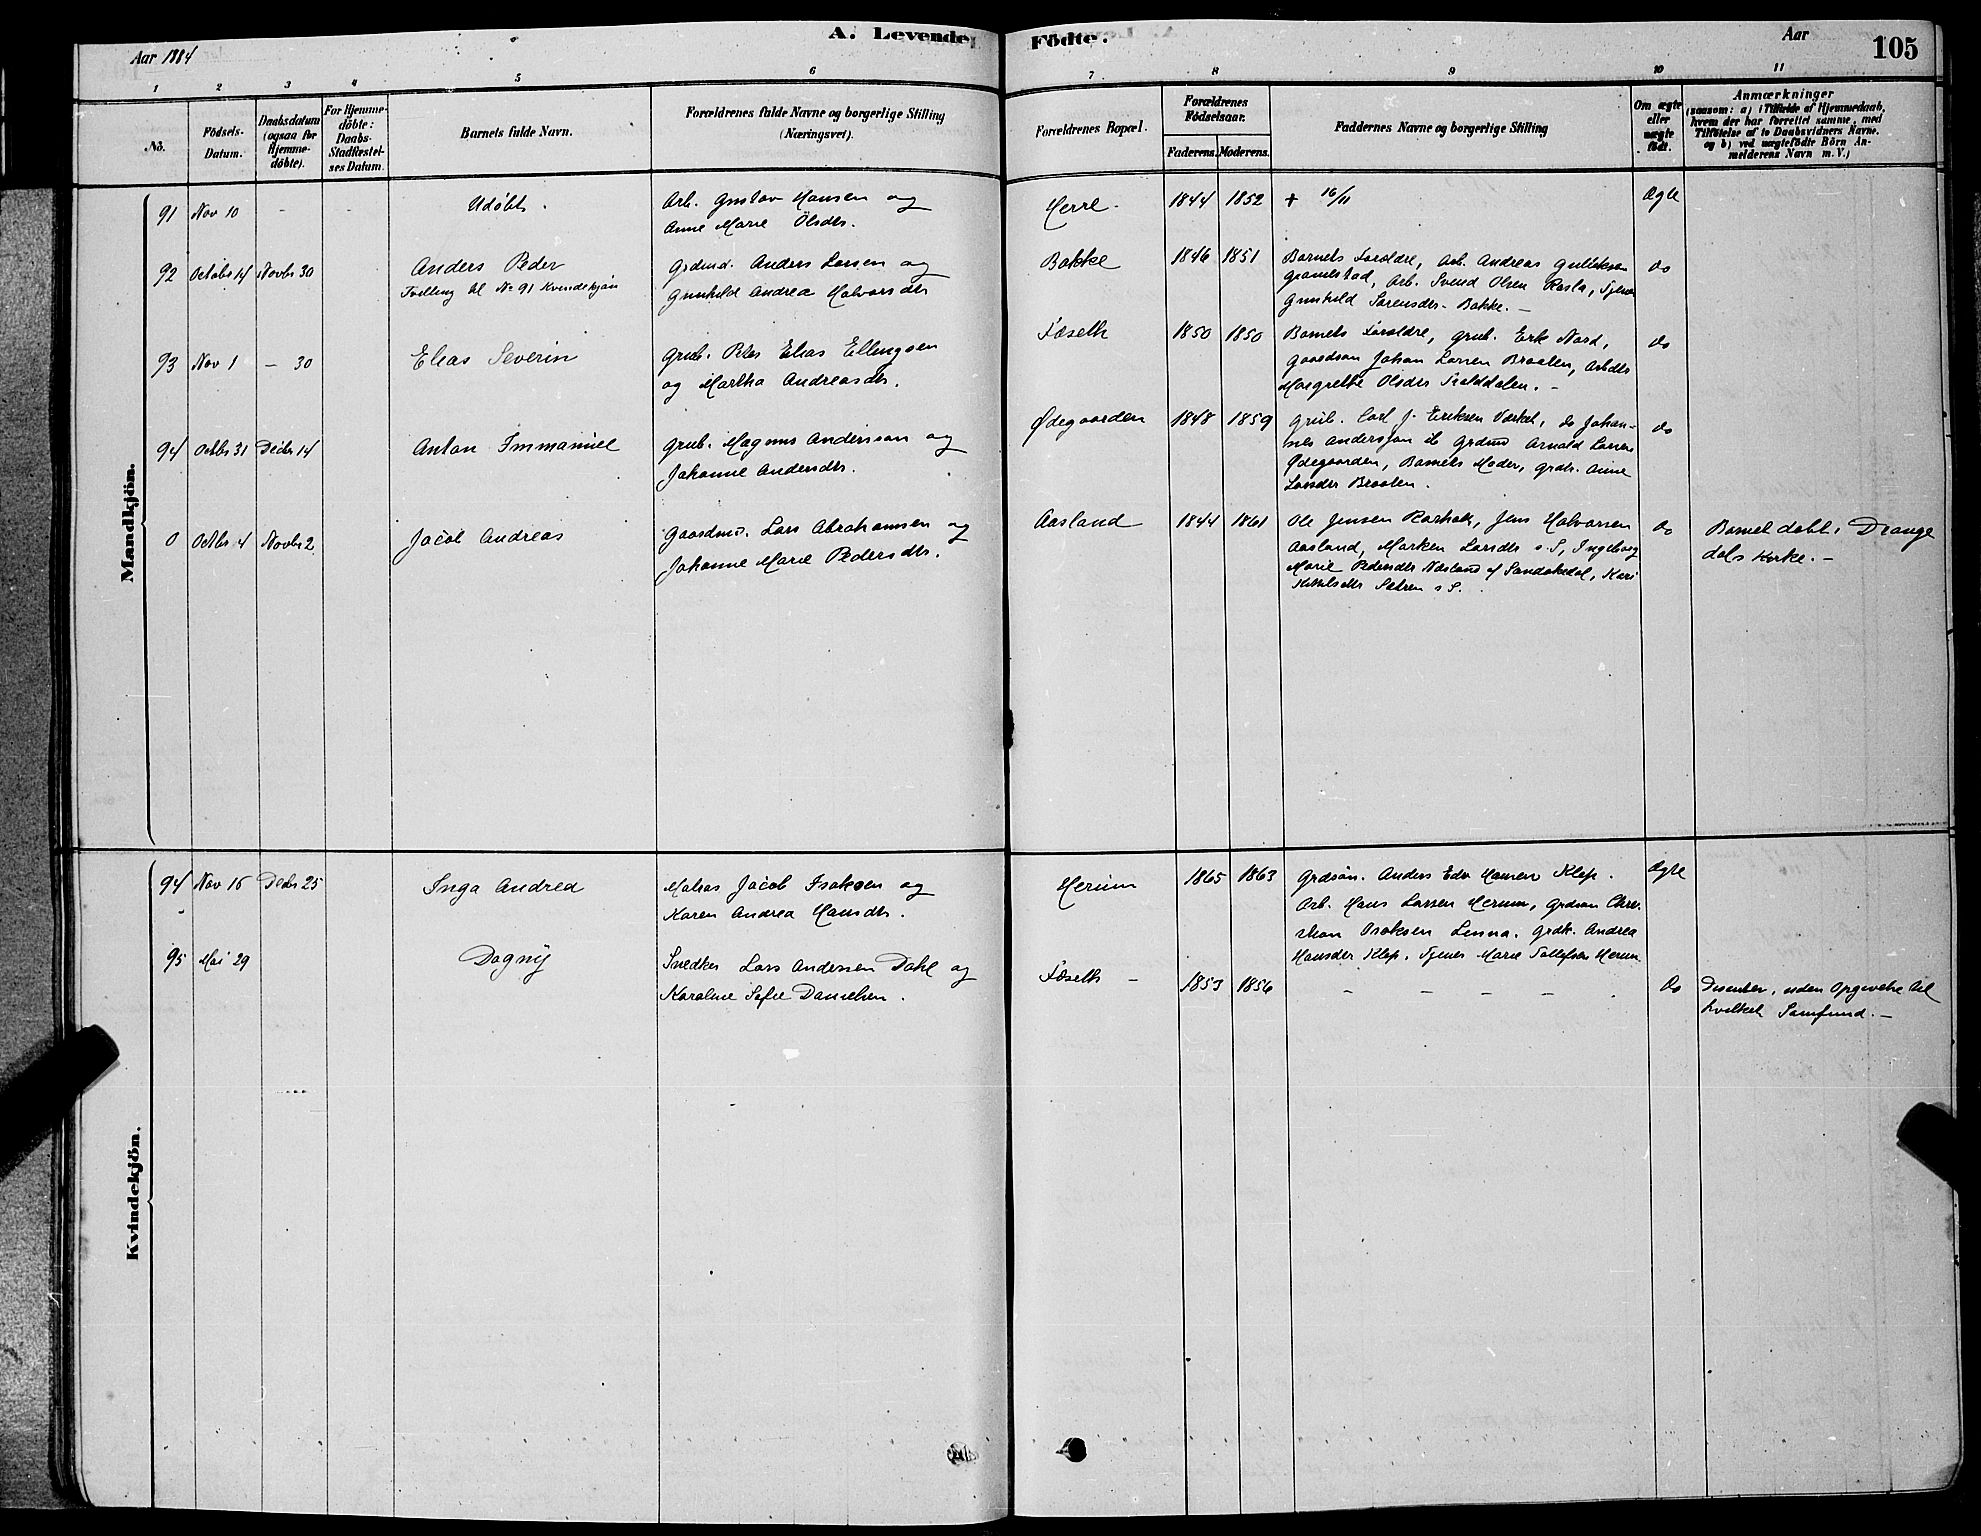 Aar 1884
A. Levende
Fødte.
Aar
105
1 2 3 4 5 6 7 8 9 10 11
No.
Födsels-
Datum.
Daabsdatum
(ogsaa för
Hjemme-
døbte).
For Hjemme-
döbte:
Daabs-
Stadfæstel-
ses Datum.
Barnets fulde Navn.
Forældrenes fulde Navne og borgerlige Stilling
(Næringsvei).
Forældrenes Bopæl.
Forældrenes
Födselsaar.
Faderens. Moderens.
Faddernes Navne og borgerlige Stilling
Om ægte
eller
uægte
født.
Anmærkninger
(saasom: a) i Tilfælde af Hjemmedaab,
hvem der har forrettet samme, med
Tilføielse af to Daabsvidners Navne,
og b) ved uægtefödte Börn An-
melderens Navn m. V.)
Mandkjön.
91 Nov 10 - - Udøbt.
Arb. Gustav Hansen og
Anne Marie Olsdtr.
Herre. 1844 1852 + 16/11 Ægte
92 Octobr 14 Novbr 30 Anders Peder
Tvilling til No 91 Kvindekjön
Grdmd. Anders Larsen og
Gunhild Andrea Halvorsdtr
Bakke 1846 1851 Barnets Foreldre, Arb. Andreas Gulliksen
Gravelstad, Arb. Svend Olsen Rasla, Tjener
Gunhild Sørensdtr. Bakke. –
do
93 Nov 1 – 30 Elias Severin
Grub. Peter Elias Ellingsen
og Martha Andreasdtr.
Fæseth 1850 1850 Barnets Foreldre, Grub. Erk Nord,
Gaardsøn Johan Larsen Braaten, Arbdtr
Margrethe Olsdtr Trolddalen. –
do
94 Octbr 31 Decbr 14 Anton Immanuel
Grub. Magnus Andersson og
Johanne Andersdtr.
Ødegaarden 1848 1859 Grub. Carl J. Eriksen Værket, do Johan-
nes Andersson ib Grdmd Arnold Larsen
Ødegaarden, Barnets Moder, Grdtr. Anne
Larsdtr Braaten.
do
0 Octbr 4 Novbr 2 Jacob Andreas
Gaardmd. Lars Abrahamsen og
Johanne Marie Pedersdtr.
Aasland 1844 1861 Ole Jensen Rørholt, Jens Halvorsen
Aasland, Marken Larsdtr s. S, Ingeborg
Marie Pedersdtr Næsland af Sandøkedal, Kari
Kittilsdtr Sætren s S.
do Barnet døbt i Drange
dals Kirke. –
Kvindekjön.
94 Nov 16 Decbr 25 Inga Andrea
Matros Jacob Isaksen og
Karen Andrea Hansdtr.
Herum 1865 1863 Grdsøn. Anders Edv Hansen Klep.
Arb. Hans Larsen Herum, Grdsøn Chri-
stian Isaksen Linna. Grdk. Andrea
Hansdtr Klep. Tjener Marie Tollefsen Herum
Ægte
95 Mai 29 Dagny
Snedker Lars Andersen Dahl og
Karoline Sofie Danielsen.
Fæseth – 1853 1856 – – – – do Dissenter, uden Opgivelse til
hvilket Samfund. –